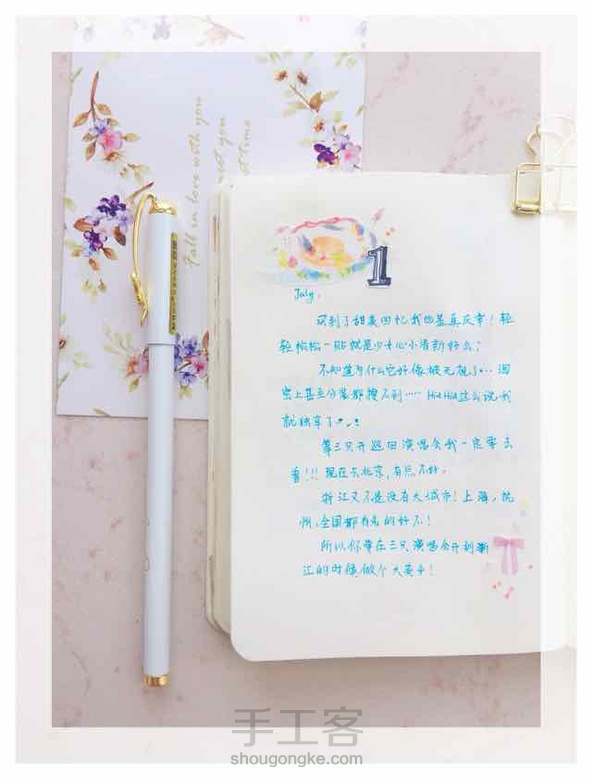 Fall in love with you
1
July.
买到了甜美回忆我也是真庆幸！轻
轻松松一贴就是少女心小清新好么？
不知道为什么它好像被无视了… 淘
宝上甚至分装都搜不到…… HiaHia这么说我
就独享了
第三只开巡回演唱会我一定要去
看!!! 现在去北京，有点不好。
浙江又不是没有大城市！上海，杭
州，全国都有名的好不！
所以你要在三只演唱会开到浙
江的时候做个大英子！
手工客
shougongke.com